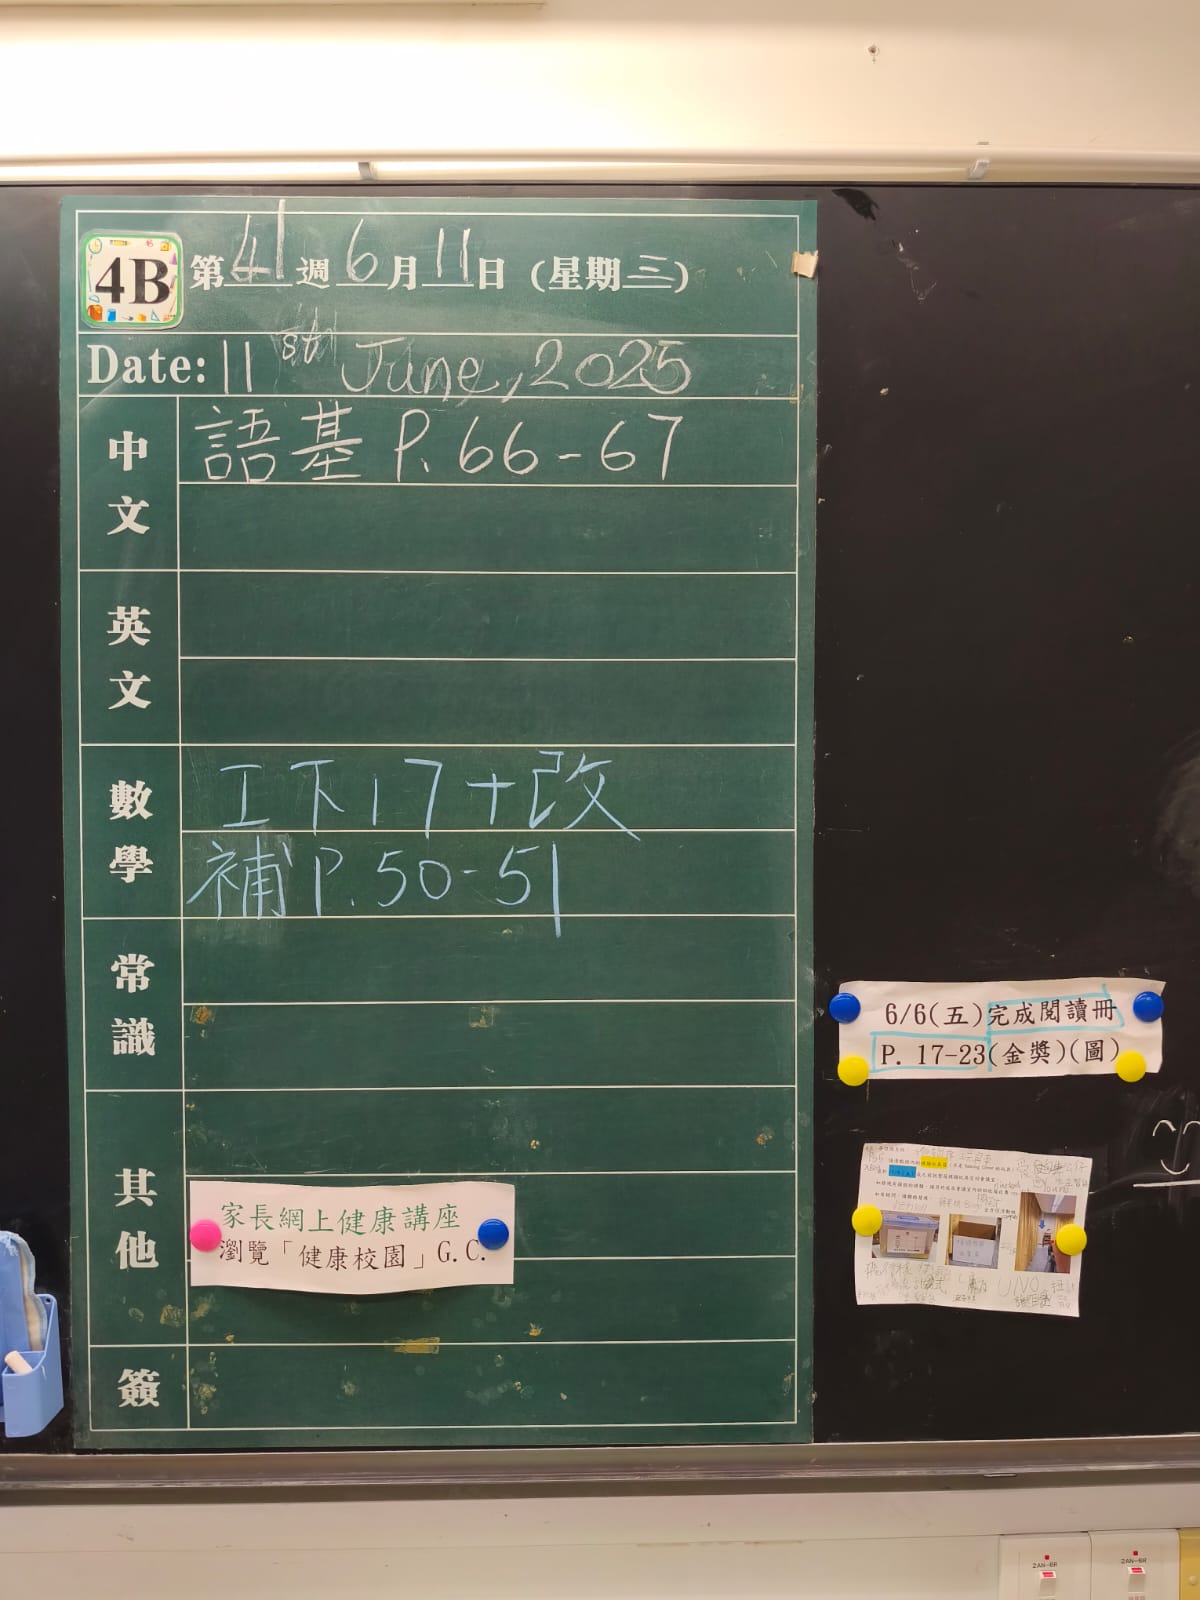 4B 第41週6月11日(星期三)
Date: 11st June, 2025
中文
語基 P. 66-67
英文
數學
工下17+改
補 P. 50-51
常識
其他
家長網上健康講座
瀏覽「健康校園」G.C.
簽
6/6(五)完成閱讀冊
P. 17-23(金獎)(圖)
UNO
2AN-6R
2AN-6R